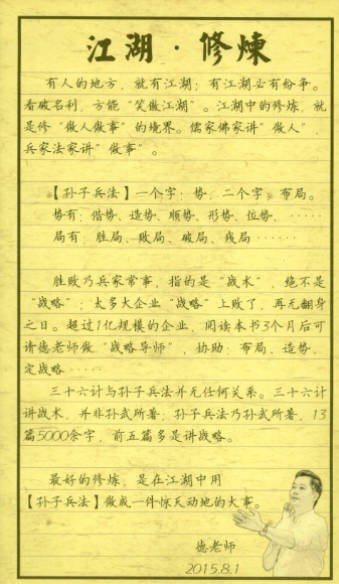 江湖·修煉
有人的地方，就有江湖；有江湖必有纷争。
看破名利，方能“笑傲江湖”。江湖中的修炼，就
是修“做人做事”的境界。儒家佛家讲“做人”，
兵家法家讲“做事”。
【孙子兵法】一个字：势，二个字：布局。
势有：借势、造势、顺势、形势、位势，……
局有：胜局、败局、破局、残局……
胜败乃兵家常事，指的是“战术”，绝不是
“战略”；太多大企业“战略”上败了，再无翻身
之日。超过1亿规模的企业，阅读本书3个月后可
请德老师做“战略导师”，协助：布局、造势、
定战略……
三十六计与孙子兵法并无任何关系。三十六计
讲战术，并非孙武所著；孙子兵法乃孙武所著，13
篇5000余字，前五篇多是讲战略。
最好的修炼，是在江湖中用
【孙子兵法】做成一件惊天动地的大事。
德老师
2015.8.1